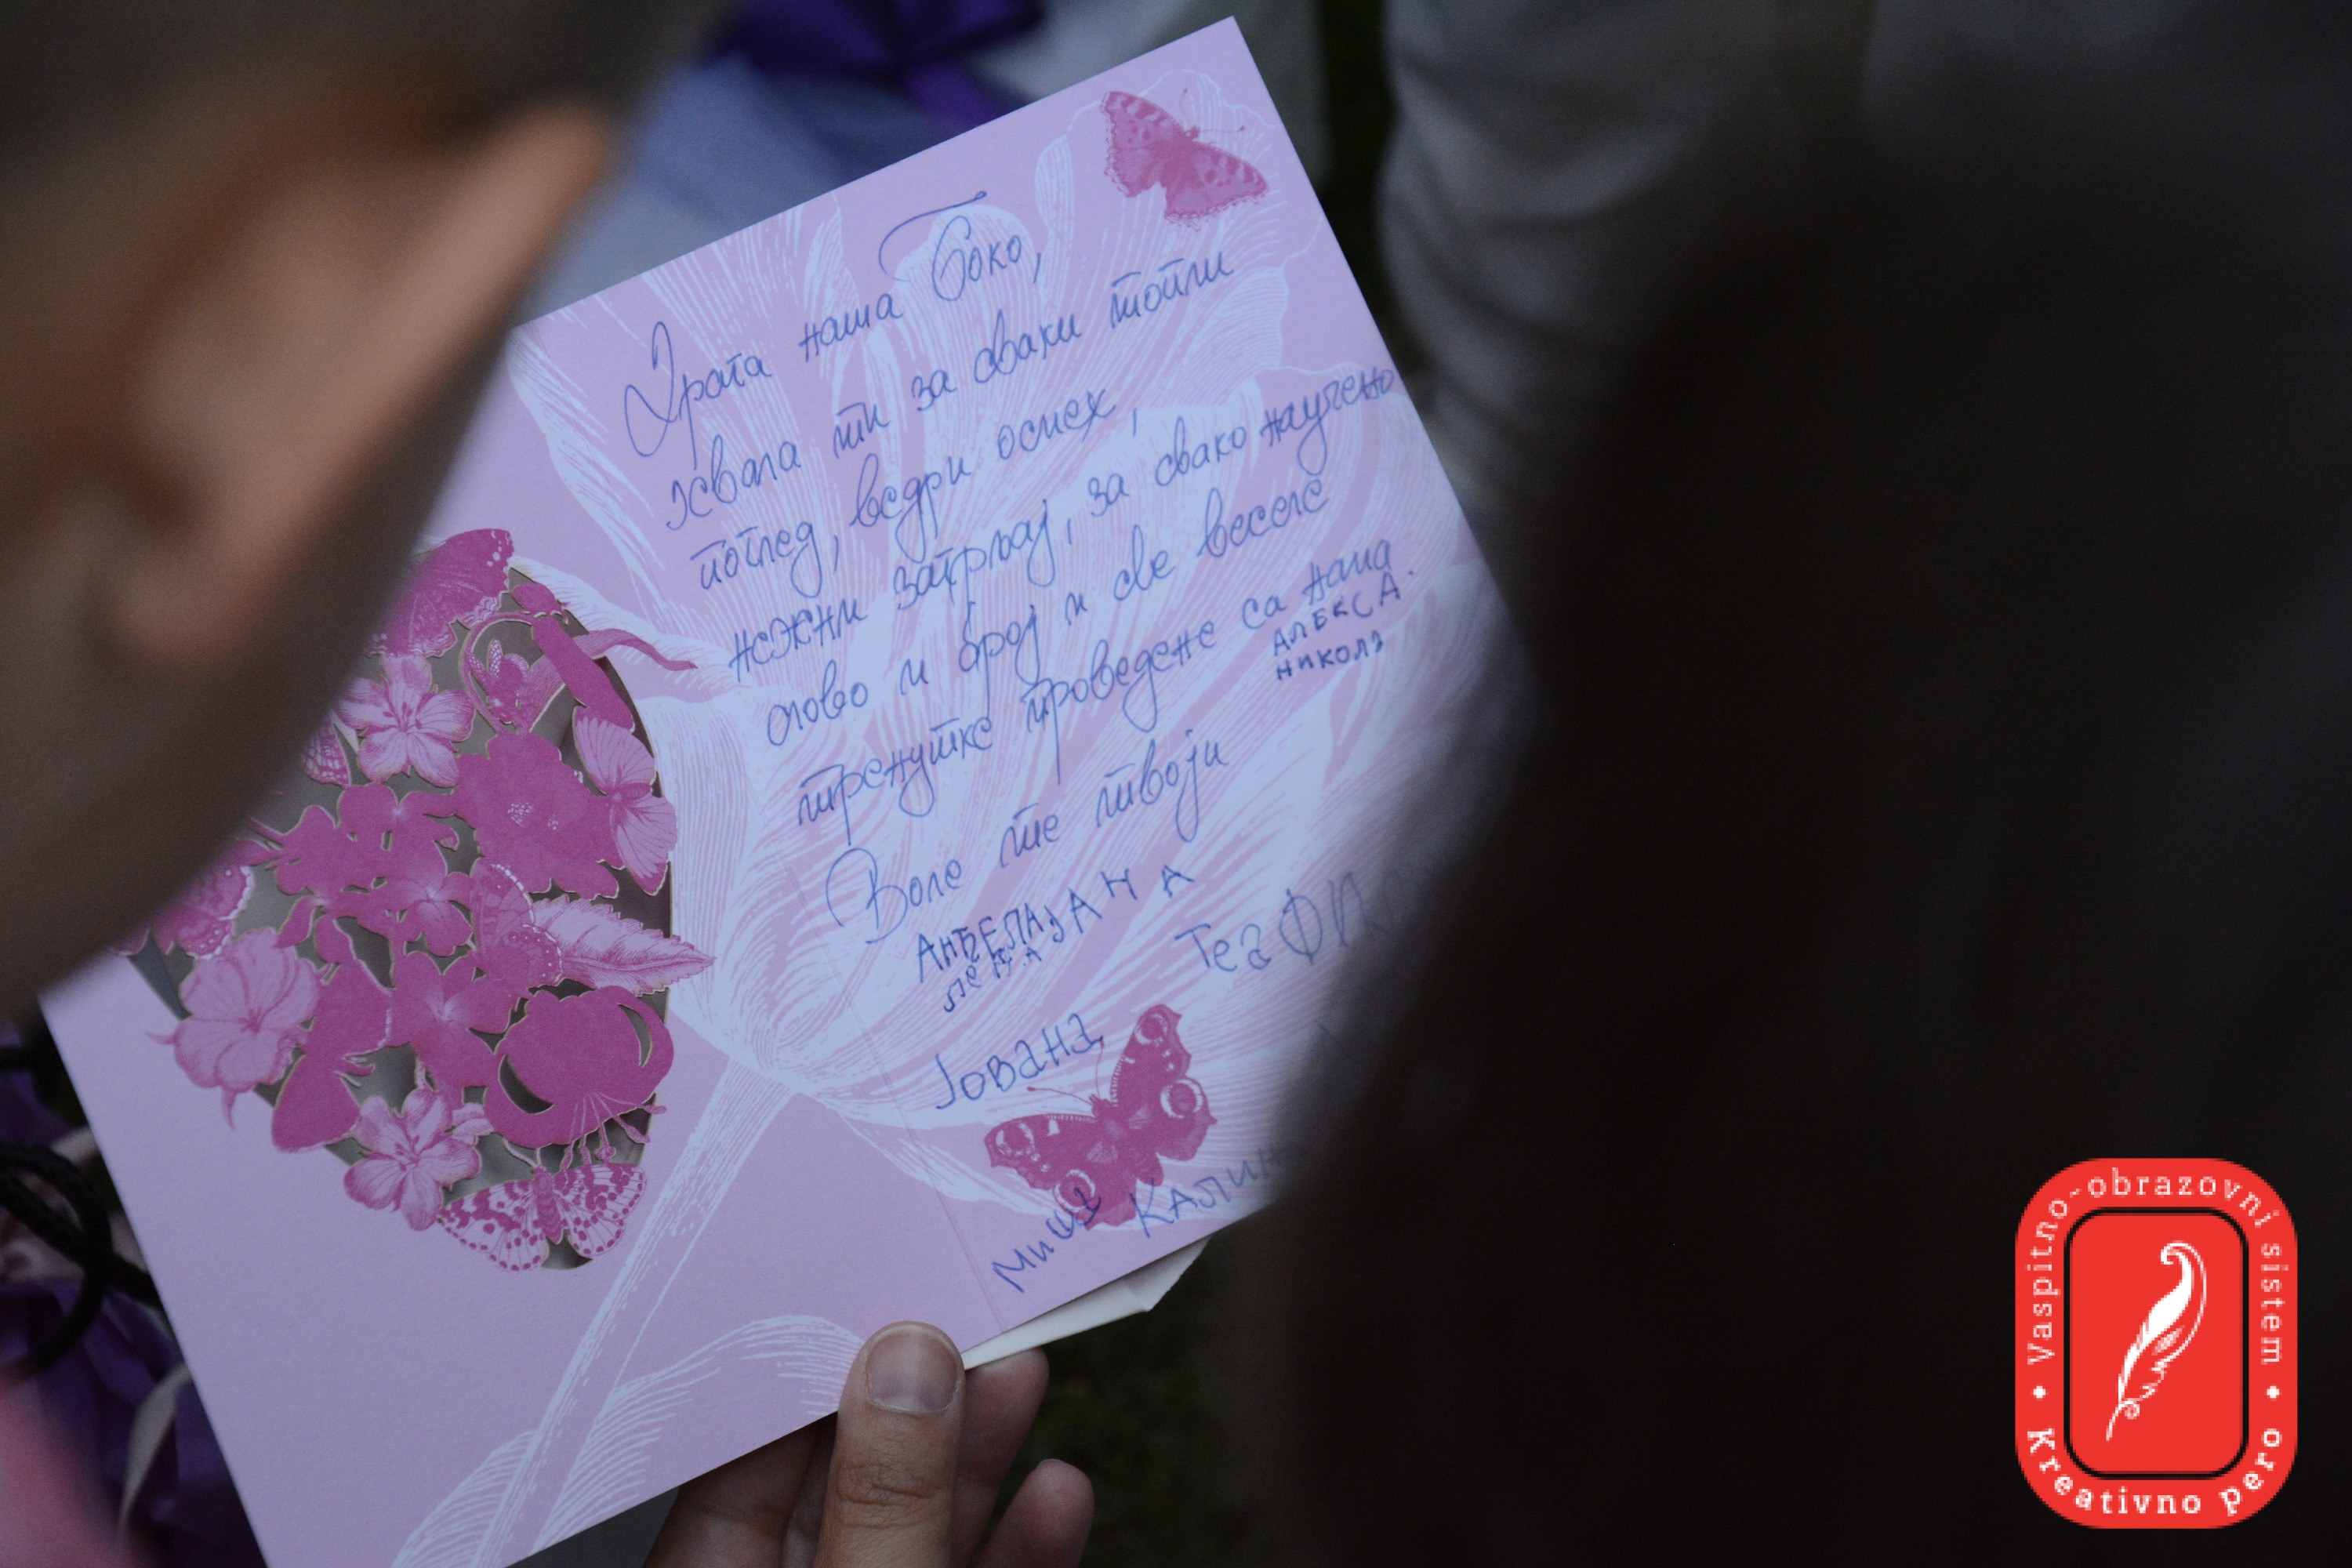 Драга наша Боко,
хвала ти за сваки топли
поглед, ведри осмех,
нежни загрљај, за свако научено
слово и број и све веселе
тренутке проведене са нама
Воле те твоји
АЛЕКСА.
НИКОЛА
АНЂЕЛА ЈАНА
Теа ФИЛ
Јована
Миша КАЛИН
Vaspitno-obrazovni sistem
Kreativno pero